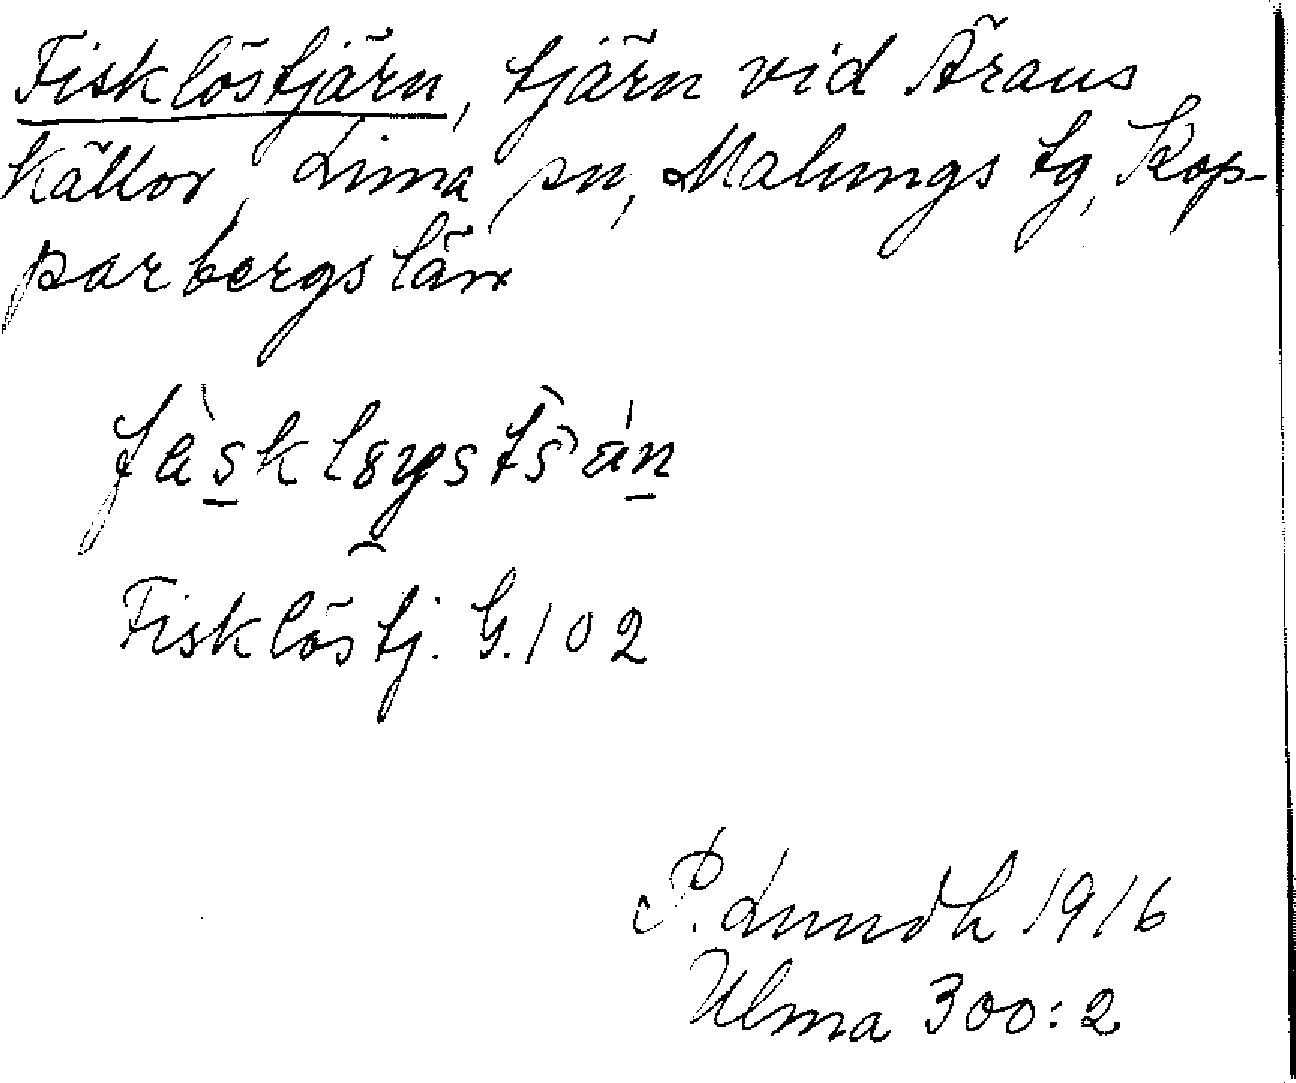 Fisklöstjärn, tjärn vid Ärans
källor, Lima sn, Malungs tg, Kop-
parbergs län
Fisklöstj. G. 102
P. Lundh 1916
Ulma 300:2